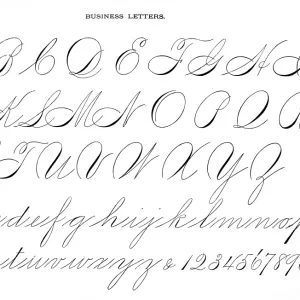 BUSINESS LETTERS.
B C D E F G H I
K L M N O P Q R
S T U V W X Y Z
d e f g h i j k l m n o p
t u v w x y z & 1 2 3 4 5 6 7 8 9